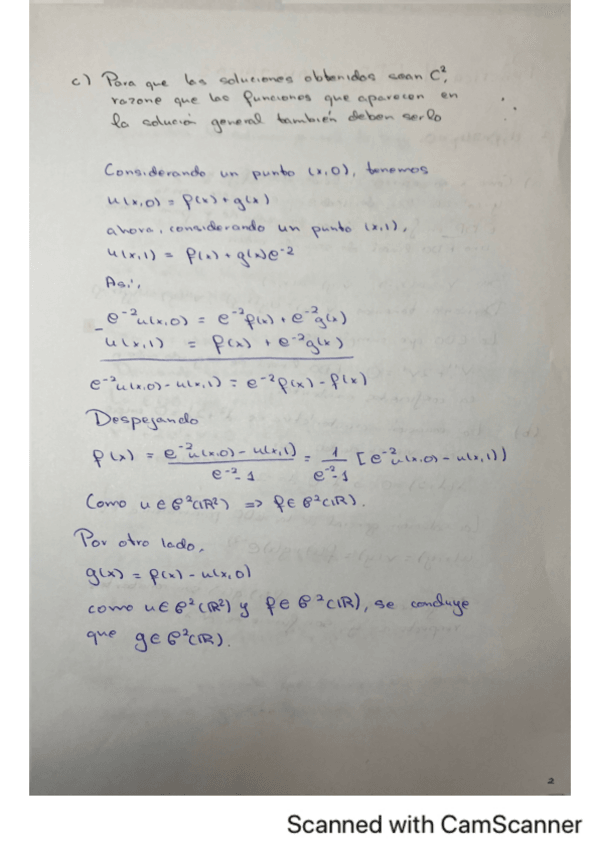 c) Para que las soluciones obtenidas sean C²,
razone que las funciones que aparecen en
la solución general también deben serlo
Considerando un punto (x,0), tenemos
u(x,0) = f(x) + g(x)
ahora, considerando un punto (x,1),
u(x,1) = f(x) + g(x)e^-2
Así,
e^-2 u(x,0) = e^-2 f(x) + e^-2 g(x)
- u(x,1) = f(x) + e^-2 g(x)
e^-2 u(x,0) - u(x,1) = e^-2 f(x) - f(x)
Despejando
f(x) = (e^-2 u(x,0) - u(x,1))/(e^-2 - 1) = 1/(e^-2 - 1) [e^-2 u(x,0) - u(x,1)]
Como u ∈ C²(ℝ²) => f ∈ C²(ℝ).
Por otro lado,
g(x) = f(x) - u(x,0)
como u ∈ C²(ℝ²) y f ∈ C²(ℝ), se concluye
que g ∈ C²(ℝ).
2
Scanned with CamScanner